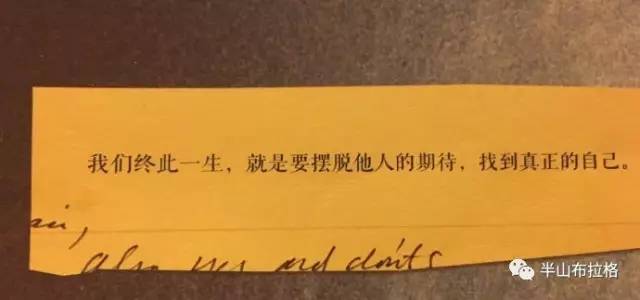 我们终此一生，就是要摆脱他人的期待，找到真正的自己。
also yes and
半山布拉格